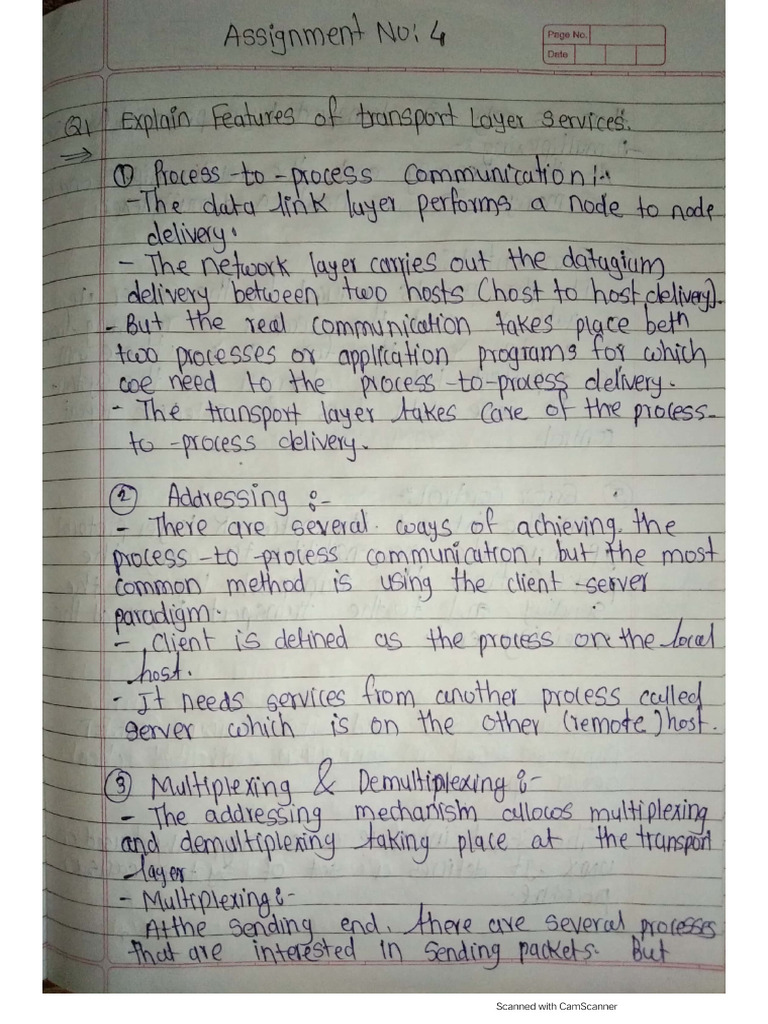 Assignment No: 4
Page No.
Date
Q1 Explain Features of transport Layer services.
⇒
① Process-to-process communication:-
- The data link layer performs a node to node
delivery.
- The network layer carries out the datagium
delivery between two hosts (host to host delivery).
- But the real communication takes place betn
two processes or application programs for which
we need to the process-to-process delivery.
- The transport layer takes care of the process-
to-process delivery.
② Addressing :-
- There are several ways of achieving the
process-to-process communication, but the most
common method is using the client-server
paradigm.
- Client is defined as the process on the local
host.
- It needs services from another process called
server which is on the other (remote) host.
③ Multiplexing & Demultiplexing :-
- The addressing mechanism allows multiplexing
and demultiplexing taking place at the transport
layer
- Multiplexing :-
At the sending end, there are several processes
that are interested in sending packets. But
Scanned with CamScanner